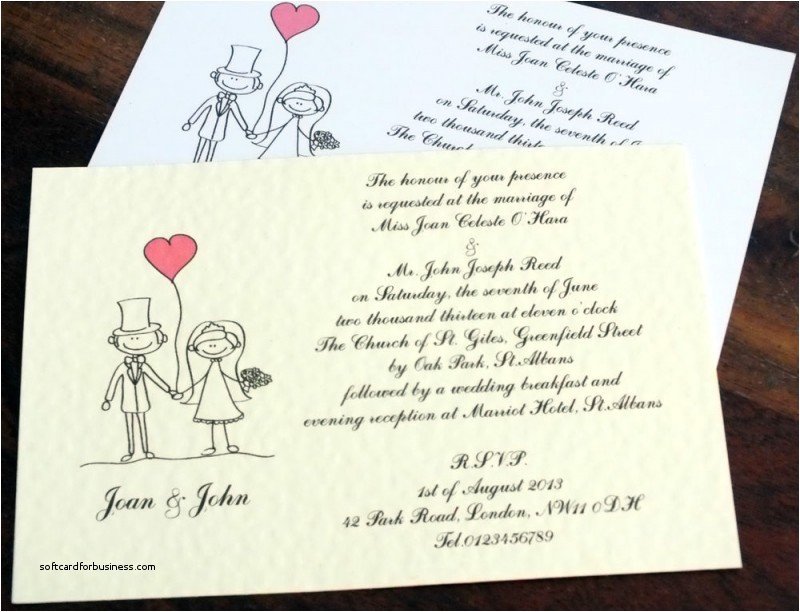 The honour of your presence
is requested at the marriage of
Miss Joan Celeste O'Hara
&
Mr. John Joseph Reed
on Saturday, the seventh of
two thousand thirteen at
The Church
The honour of your presence
is requested at the marriage of
Miss Joan Celeste O'Hara
&
Mr. John Joseph Reed
on Saturday, the seventh of June
two thousand thirteen at eleven o'clock
The Church of St. Giles, Greenfield Street
by Oak Park, St.Albans
followed by a wedding breakfast and
evening reception at Marriot Hotel, St.Albans
R.S.V.P.
1st of August 2013
42 Park Road, London, NW11 0DH
Tel.0123456789
Joan & John
softcardforbusiness.com